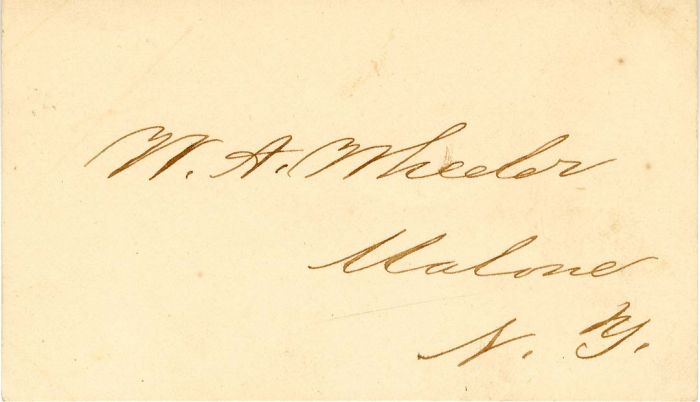 W. A. Wheeler
Malone
N. Y.